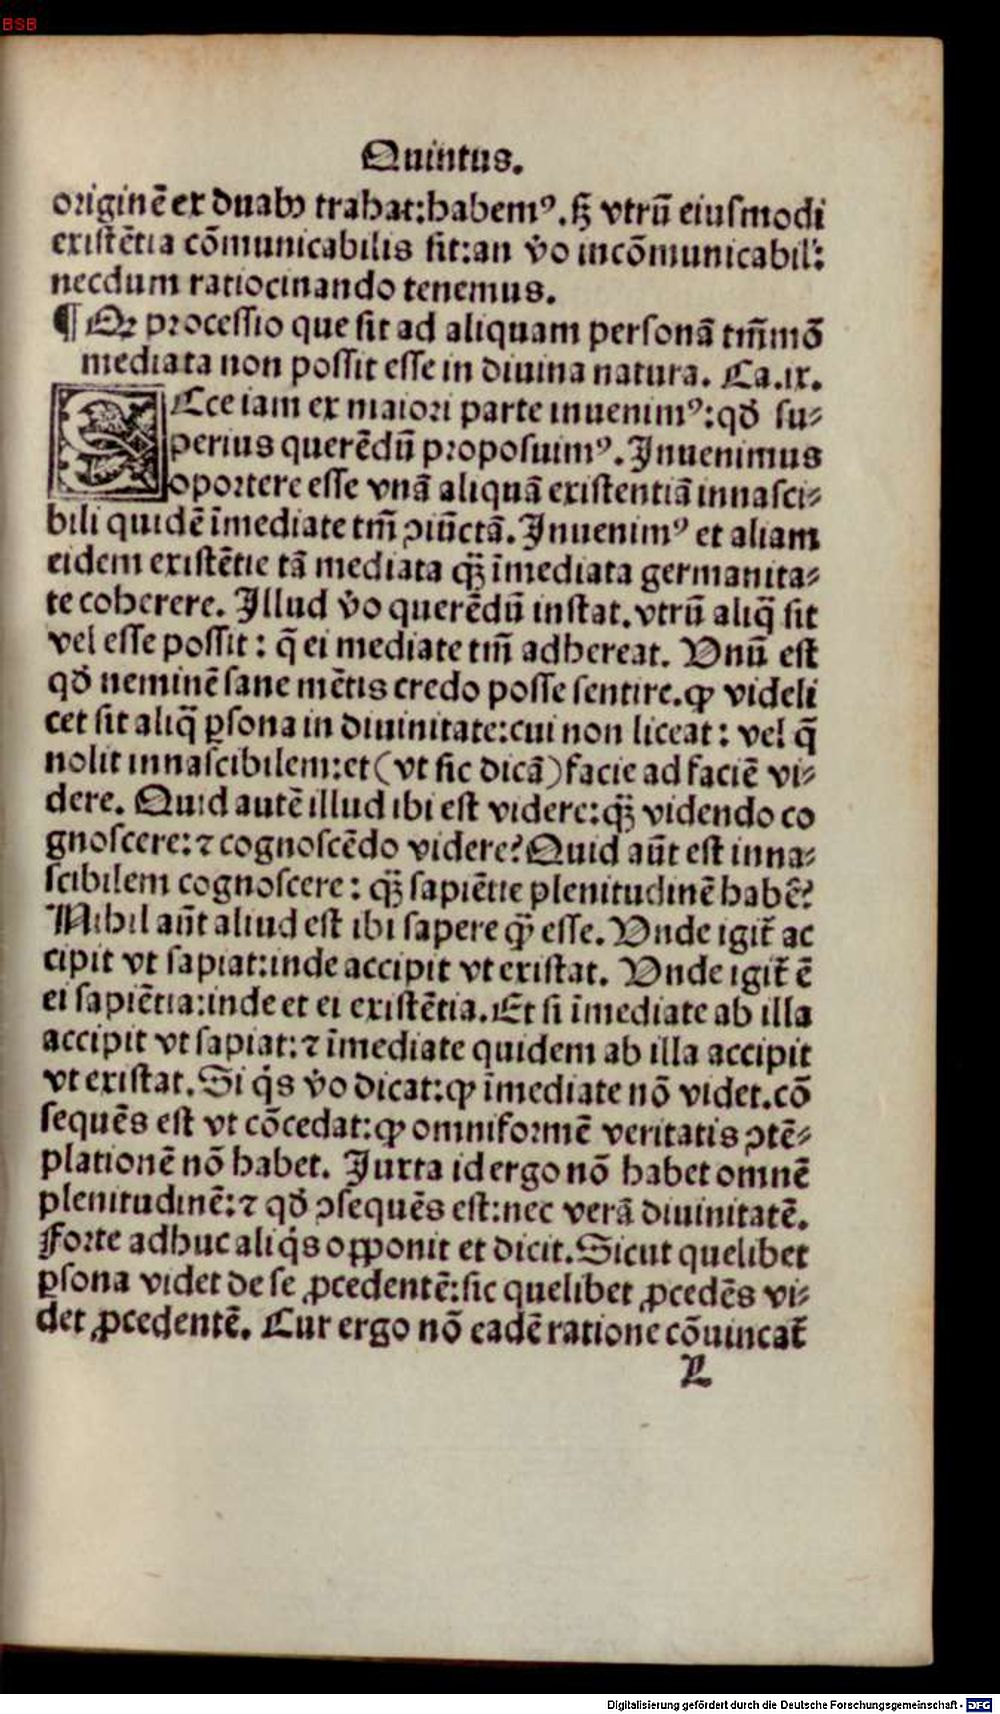 BSB
Quintus.
originē ex duabꝰ trahat:habemꝰ.sꝫ vtrū eiusmodi
existētia cōmunicabilis sit:an v̄o incōmunicabil':
necdum ratiocinando tenemus.
¶ Qꝛ processio que sit ad aliquam personā tm̄mō
mediata non possit esse in diuina natura. Ca.ix.
ECce iam ex maiori parte inuenimꝰ:qd̄ su⸗
perius querēdū proposuimꝰ. Inuenimus
oportere esse vnā aliquā existentiā innasci⸗
bili quidē īmediate tm̄ ꝯiūctā. Inuenimꝰ et aliam
eidem existētie tā mediata qꝫ̄ īmediata germanita⸗
te coherere. Illud v̄o querēdū instat.vtrū aliq̄ sit
vel esse possit: q̄ ei mediate tm̄ adhereat. Vnū est
qd̄ neminē sane mētis credo posse sentire.ꝙ videli
cet sit aliq̄ ꝑsona in diuinitate:cui non liceat: vel q̄
nolit innascibilem:et (vt sic dicā) facie ad faciē vi⸗
dere. Quid autē illud ibi est videre:qꝫ̄ videndo co
gnoscere:⁊ cognoscēdo videre? Quid aūt est inna⸗
scibilem cognoscere: qꝫ̄ sapiētie plenitudinē habē?
Nihil aūt aliud est ibi sapere ꝙ̄ esse. Vnde igit̄ ac
cipit vt sapiat:inde accipit vt existat. Vnde igit̄ ē
ei sapiētia:inde et ei existētia. Et si īmediate ab illa
accipit vt sapiat:⁊ īmediate quidem ab illa accipit
vt existat. Si q̇s v̄o dicat:ꝙ īmediate nō videt.cō
sequēs est vt cōcedat:ꝙ omniformē veritatis ꝯtē⸗
plationē nō habet. Iuxta id ergo nō habet omnē
plenitudinē:⁊ qd̄ ꝯsequēs est:nec verā diuinitatē.
Forte adhuc aliq̇s oꝓponit et dicit. Sicut quelibet
ꝑsona videt de se ꝓcedentē:sic quelibet ꝓcedēs vi⸗
det ꝓcedentē. Cur ergo nō eadē ratione cōuincat̄
L
Digitalisierung gefördert durch die Deutsche Forschungsgemeinschaft - DFG